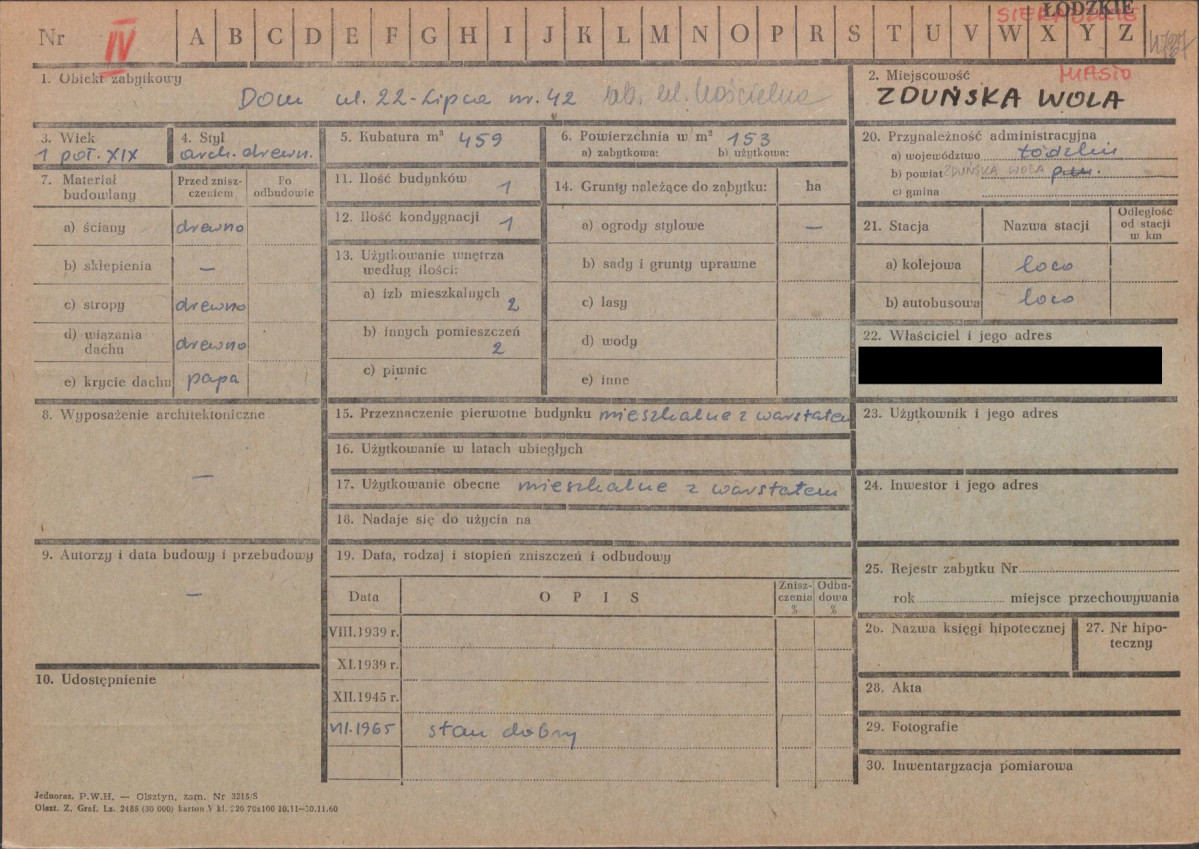 ŁÓDZKIE
SIERADZKIE
Nr IV A B C D E F G H I J K L M N O P R S T U V W X Y Z
1. Obiekt zabytkowy
Dom ul. 22-Lipca nr. 42 ob. ul. Kościelna
2. Miejscowość MIASTO
ZDUŃSKA WOLA
3. Wiek
1 poł. XIX
4. Styl
arch. drewn.
5. Kubatura m³ 459
6. Powierzchnia w m² 153
a) zabytkowa: b) użytkowa:
20. Przynależność administracyjna
a) województwo łódzkie
b) powiat ZDUŃSKA WOLA
c) gmina
7. Materiał budowlany
Przed zniszczeniem
Po odbudowie
a) ściany drewno
b) sklepienia —
c) stropy drewno
d) wiązania dachu drewno
e) krycie dachu papa
11. Ilość budynków 1
12. Ilość kondygnacji 1
13. Użytkowanie wnętrza
według ilości:
a) izb mieszkalnych 2
b) innych pomieszczeń 2
c) piwnic
14. Grunty należące do zabytku: ha
a) ogrody stylowe —
b) sady i grunty uprawne
c) lasy
d) wody
e) inne
21. Stacja Nazwa stacji Odległość od stacji w km
a) kolejowa loco
b) autobusowa loco
22. Właściciel i jego adres
8. Wyposażenie architektoniczne
—
15. Przeznaczenie pierwotne budynku mieszkalne z warstatem
16. Użytkowanie w latach ubiegłych
17. Użytkowanie obecne mieszkalne z warstatem
18. Nadaje się do użycia na
23. Użytkownik i jego adres
24. Inwestor i jego adres
9. Autorzy i data budowy i przebudowy
—
19. Data, rodzaj i stopień zniszczeń i odbudowy
Data OPIS Zniszczenia % Odbudowa %
VIII.1939 r.
XI.1939 r.
XII.1945 r.
VII.1965 stan dobry
10. Udostępnienie
25. Rejestr zabytku Nr
rok miejsce przechowywania
26. Nazwa księgi hipotecznej
27. Nr hipoteczny
28. Akta
29. Fotografie
30. Inwentaryzacja pomiarowa
Jednoraz. P.W.H. — Olsztyn, zam. Nr 3215/S
Olszt. Z. Graf. Lz. 2485 (30 000) karton V kl. 220 70x100 10.11—30.11.60